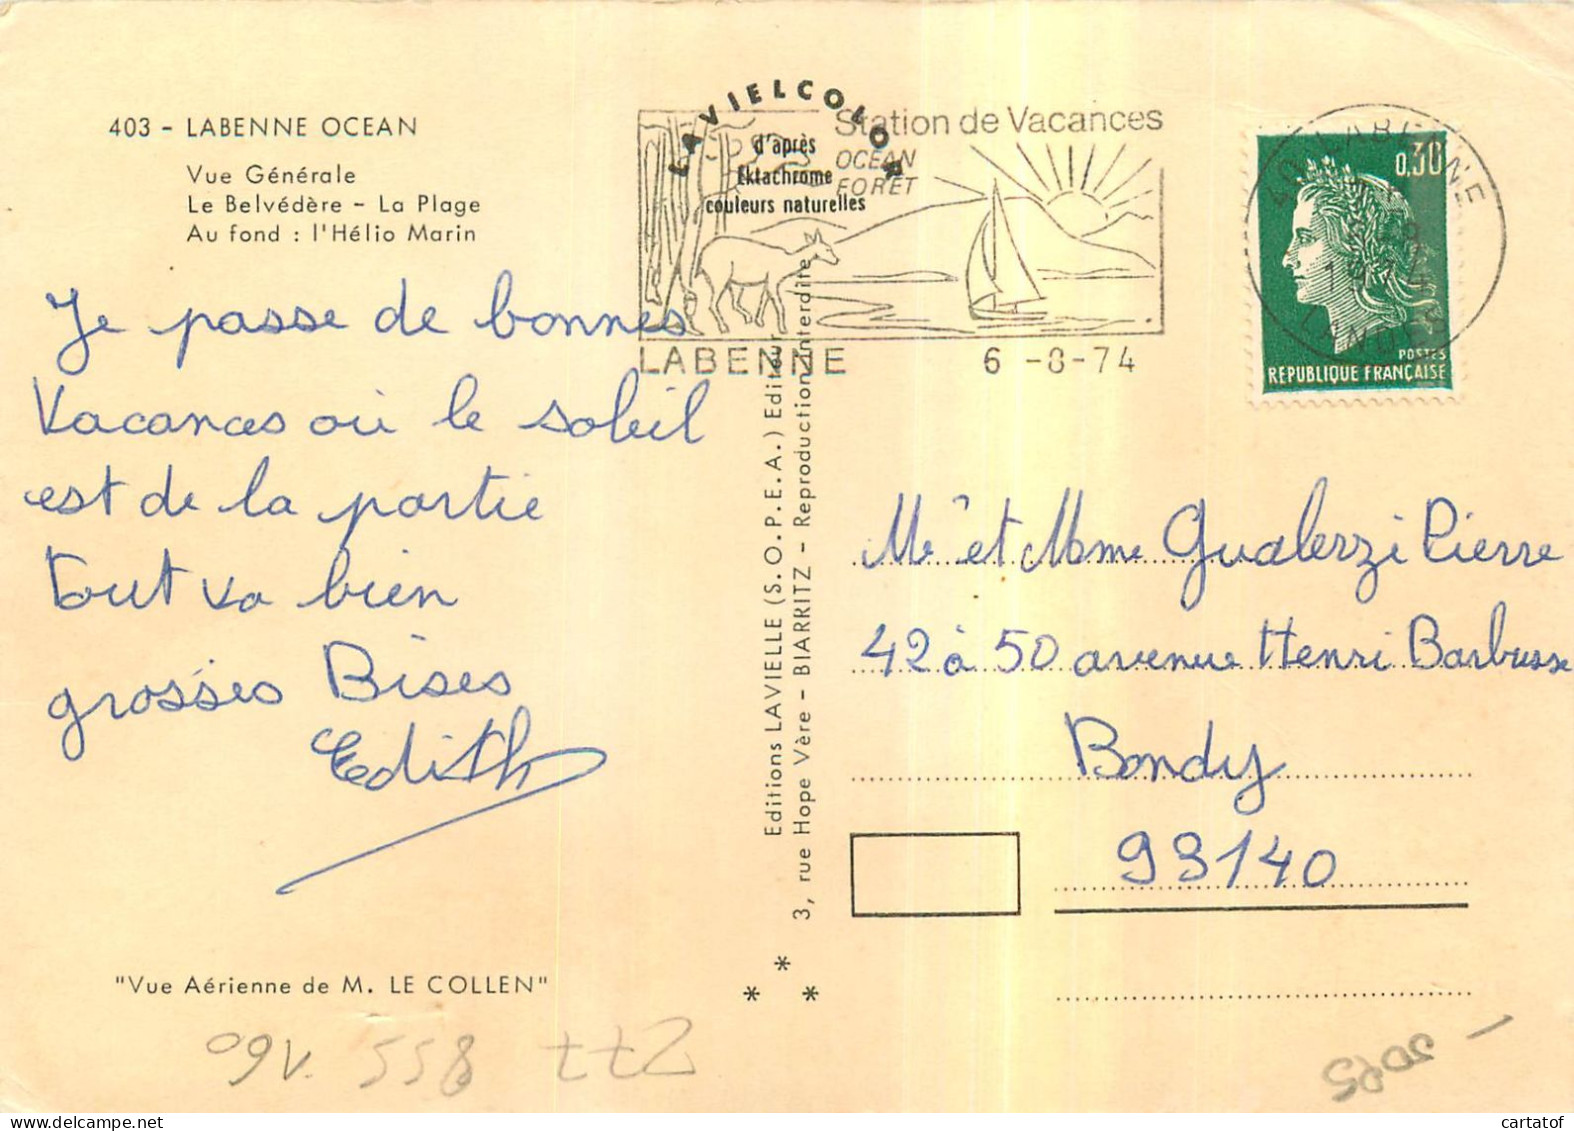 403 - LABENNE OCEAN
Vue Générale
Le Belvédère - La Plage
Au fond : l'Hélio Marin
Je passe de bonnes
Vacances où le soleil
est de la partie
Tout va bien
grosses Bises
Edith
"Vue Aérienne de M. LE COLLEN"
LAVIELCOLOR
d'après
Ektachrome
couleurs naturelles
Station de Vacances
OCEAN
FORET
LABENNE 6 -8-74
Editions LAVIELLE (S.O.P.E.A.) Editeur
3, rue Hope Vère - BIARRITZ - Reproduction interdite
40 LABENNE
1974
LANDES
0,30
POSTES
REPUBLIQUE FRANÇAISE
Mr et Mme Gualerzi Pierre
42 à 50 avenue Henri Barbusse
Bondy
93140
cartatof